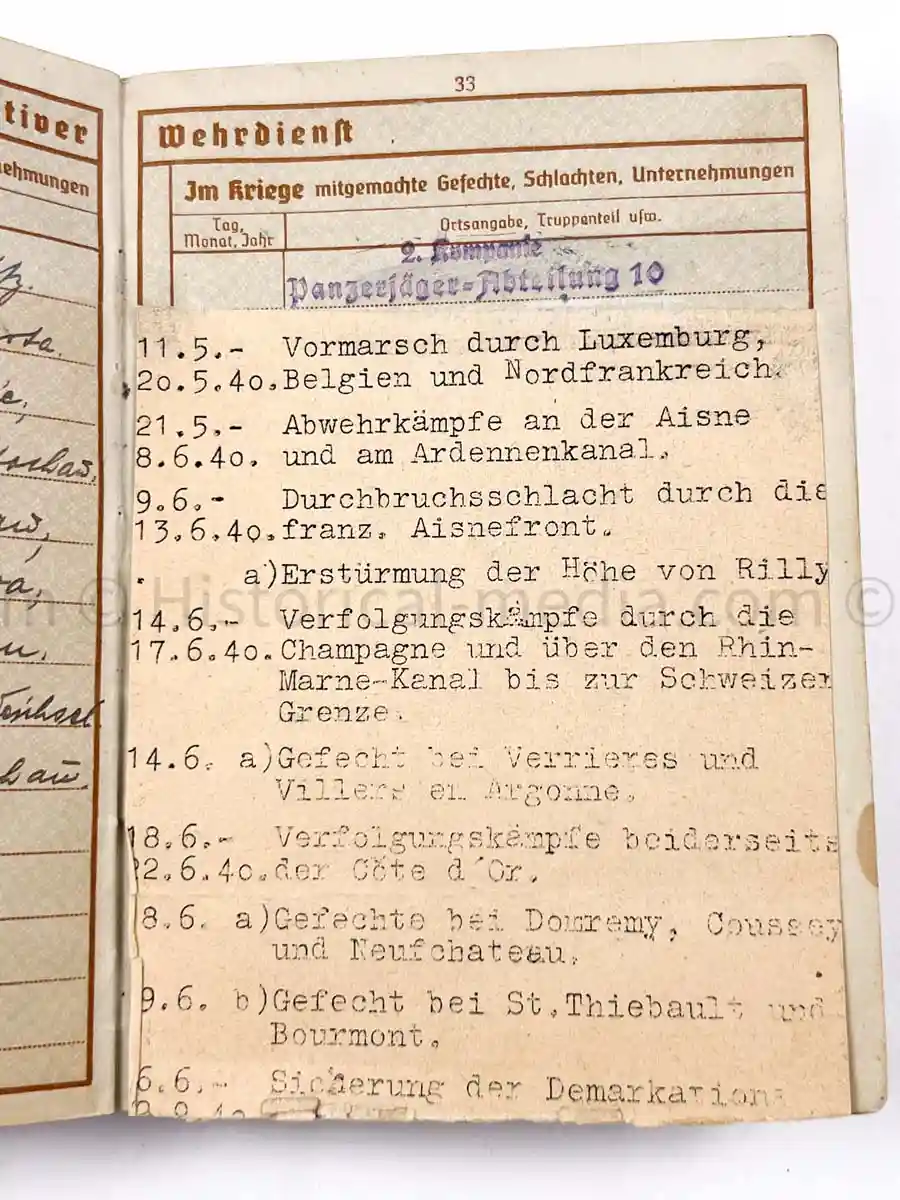 tiver
nehmungen
33
Wehrdienst
Im Kriege mitgemachte Gefechte, Schlachten, Unternehmungen
Tag, Monat, Jahr
Ortsangabe, Truppenteil usw.
2. Kompanie
Panzerjäger-Abteilung 10
11.5.- Vormarsch durch Luxemburg,
2o.5.4o. Belgien und Nordfrankreich.
21.5.- Abwehrkämpfe an der Aisne
8.6.4o. und am Ardennenkanal.
9.6.- Durchbruchsschlacht durch die
13.6.4o. franz. Aisnefront.
a)Erstürmung der Höhe von Rilly
14.6.- Verfolgungskämpfe durch die
17.6.4o. Champagne und über den Rhin-
Marne-Kanal bis zur Schweizer
Grenze.
14.6. a)Gefecht bei Verrieres und
Villers en Argonne.
18.6.- Verfolgungskämpfe beiderseits
22.6.4o. der Côte d'Or.
8.6. a)Gefechte bei Domremy, Coussey
und Neufchateau.
9.6. b)Gefecht bei St.Thiebault und
Bourmont.
6.6.- Sicherung der Demarkations
© Historical-media.com ©